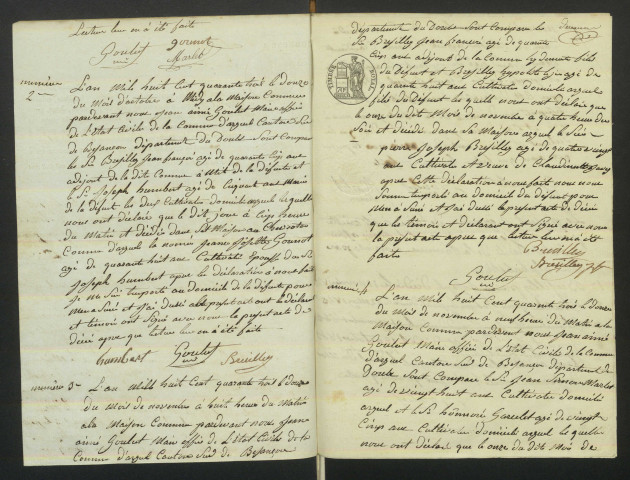 Lecture leur en a été faite
Goulet gounot
Marlet
numéro 2me
L'an Mils huit Cent quarante huit le douze
du Mois d'octobre a Midy a la Maison Commune
pardevant nous Jean aimé Goulet Maire officié
de L'Etat Civile de la Commune d'arguel Canton Sud
de Besançon département du doubs Sont Comparu
le Sr Breuilley Jean françois agé de quarante Cinq ans
adjoint de la dite Commune
et Sr Joseph humbert agé de Cinquante ans Marie
de la défunte les deux Cultivateur domicilié arguel lesquelle
nous ont déclaré que le dit Jour à Cinq heure
du Matin est décédée dans Sa Maison
Commune d'arguel la nommé Jeanne Josephte Gounot
agé de quarante huit ans Cultivatrice Epouse du Sr
Joseph humbert apre la déclaration a nous fait
Je me Suis transporté au domicile de la défunte pour
Men a Suré et J'ai dressé le present act ont le déclarant
et témoin ont Signé avec nous le present acte de
décé apre que lecture leur en a été faite
humbert Goulet Breuilley
numéro 3me L'an Mils huit Cent quarante huit le douze
du Mois de novembre à huit heure du Matin
a la Maison Commune pardevant nous Jean
aimé Goulet Maire officié de L'Etat Civile de la
Commune d'arguel Canton Sud de Besançon
département du doubs Sont Comparu les
Sr Breuilley Jean francois agé de quarante
Cinq ans adjoint de la Commune
du défunt et Breuilley hypolite agé de
quarante huit ans Cultivateur domicilié arguel
fils du défunt les quelle nous ont déclaré que
le onze du dit Mois de novembre a quatre heure du
Soir est décédé dans Sa Maison arguel le Sieur
pierre Joseph Breuilley agé de quatre vingt
ans Cultivateur
apre Cette déclaration a nous faite nous nous
Somme transporté au domicile du défunt pour
Men a Suré et J'ai dressé le present acte de décé
que les témoin et déclarant ont Signé avec nous
le present acte apre que lecture leur en a été
faite
Breuilley
Breuilley
Goulet
numéro 4
L'an Mil huit Cent quarante huit le douze
du Mois de novembre a neuf heure du Matin a la
Maison Commune pardevant nous Jean aimé
Goulet Maire officié de L'Etat Civile de la Commune
d'arguel Canton Sud de Besançon département du
doubs Sont Comparu le Sr Jean Simon Marlet
agé de vingt huit ans Cultivateur domicilié
arguel et le Sr honnoré agé de vingt
Cinq ans Cultivateur domicilié arguel les quelle
nous ont déclaré que le onze du dit Mois de